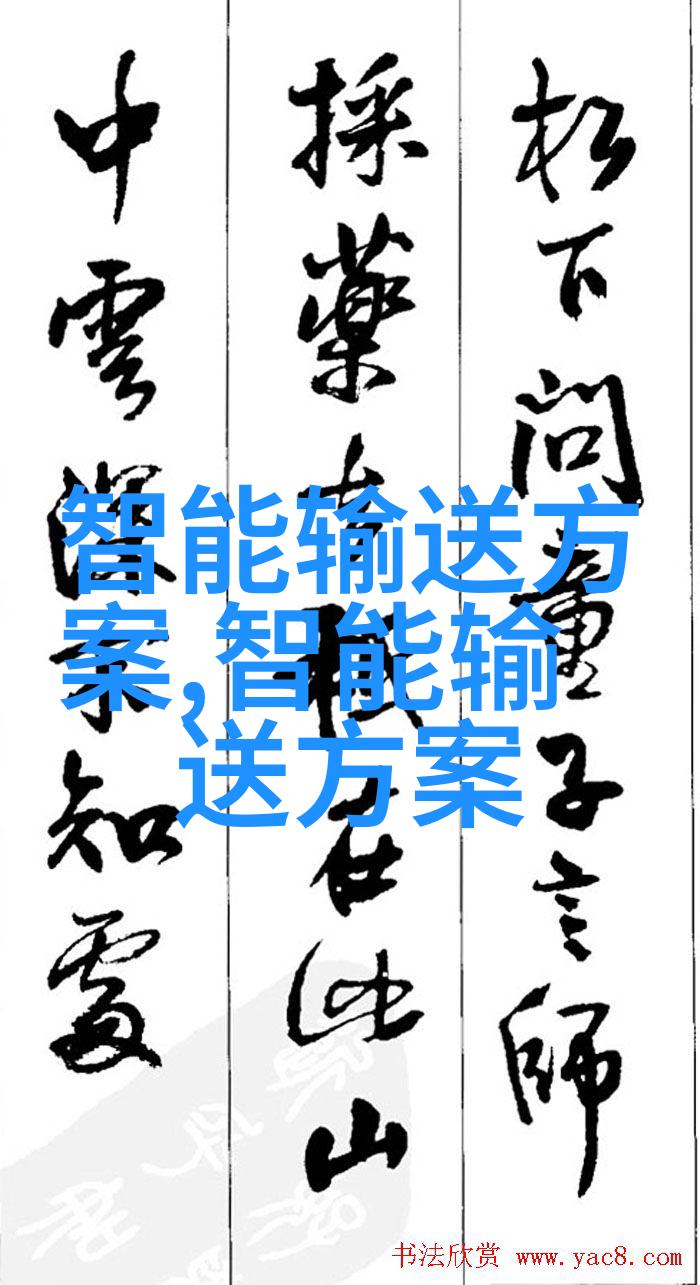 松下问童子言師
採藥去祇在此山
中雲深不知處
智能输送方
案,智能输
送方案
书法欣赏 www.yac8.com